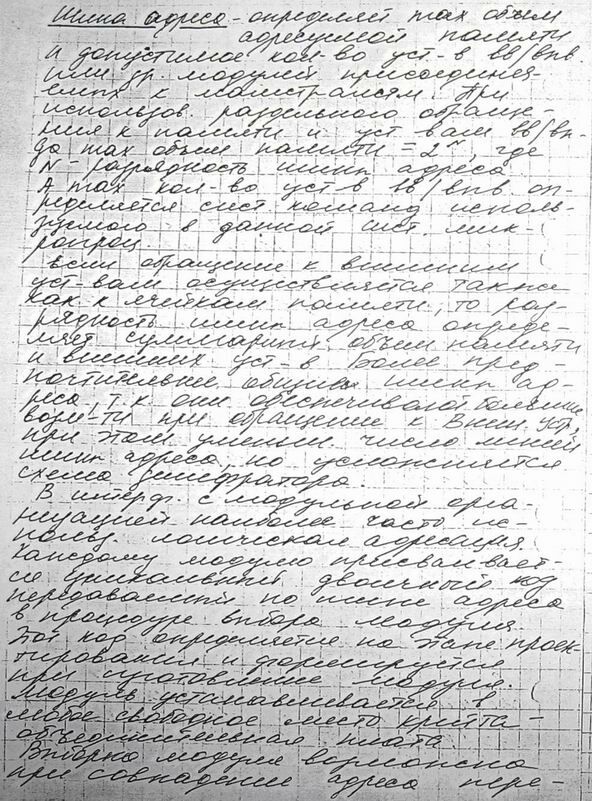 Шина адреса - определяет max объем
адресуемой памяти
и допустимое кол-во уст-в вв/выв.
или др. модулей присоединя-
емых к магистралям. При
использов. раздельного обраще-
ния к памяти и уст-вам вв/вы-
да max объем памяти = 2ᴺ, где
N - разрядность шины адреса
А max кол-во уст-в вв/выв оп-
ределяется сист. команд исполь-
зуемого в данной сист. мик-
ропроц.
Если обращение к внешним
уст-вам осуществляется также
как к ячейкам памяти, то раз-
рядность шины адреса опреде-
ляет суммарный объем памяти
и внешних уст-в. Более пред-
почтительнее общие шины ад-
реса, т.к. они обеспечивают большие
возм-ти при обращении к внеш. уст.,
при этом уменьш. число линий
шин адреса, но усложняется
схема дешифратора.
В интерф. с модульной орга-
низацией наиболее часто ис-
польз. логическая адресация.
Каждому модулю присваивает-
ся уникальный двоичный код
передаваемый по шине адреса
в процессе выбора модуля.
Этот код определяется на этапе проек-
тирования и формируется
при изготовлении модуля.
Модуль устанавливается в
любое свободное место крейта -
объединительная плата.
Выборка модуля возможна
при совпадении адреса пере-